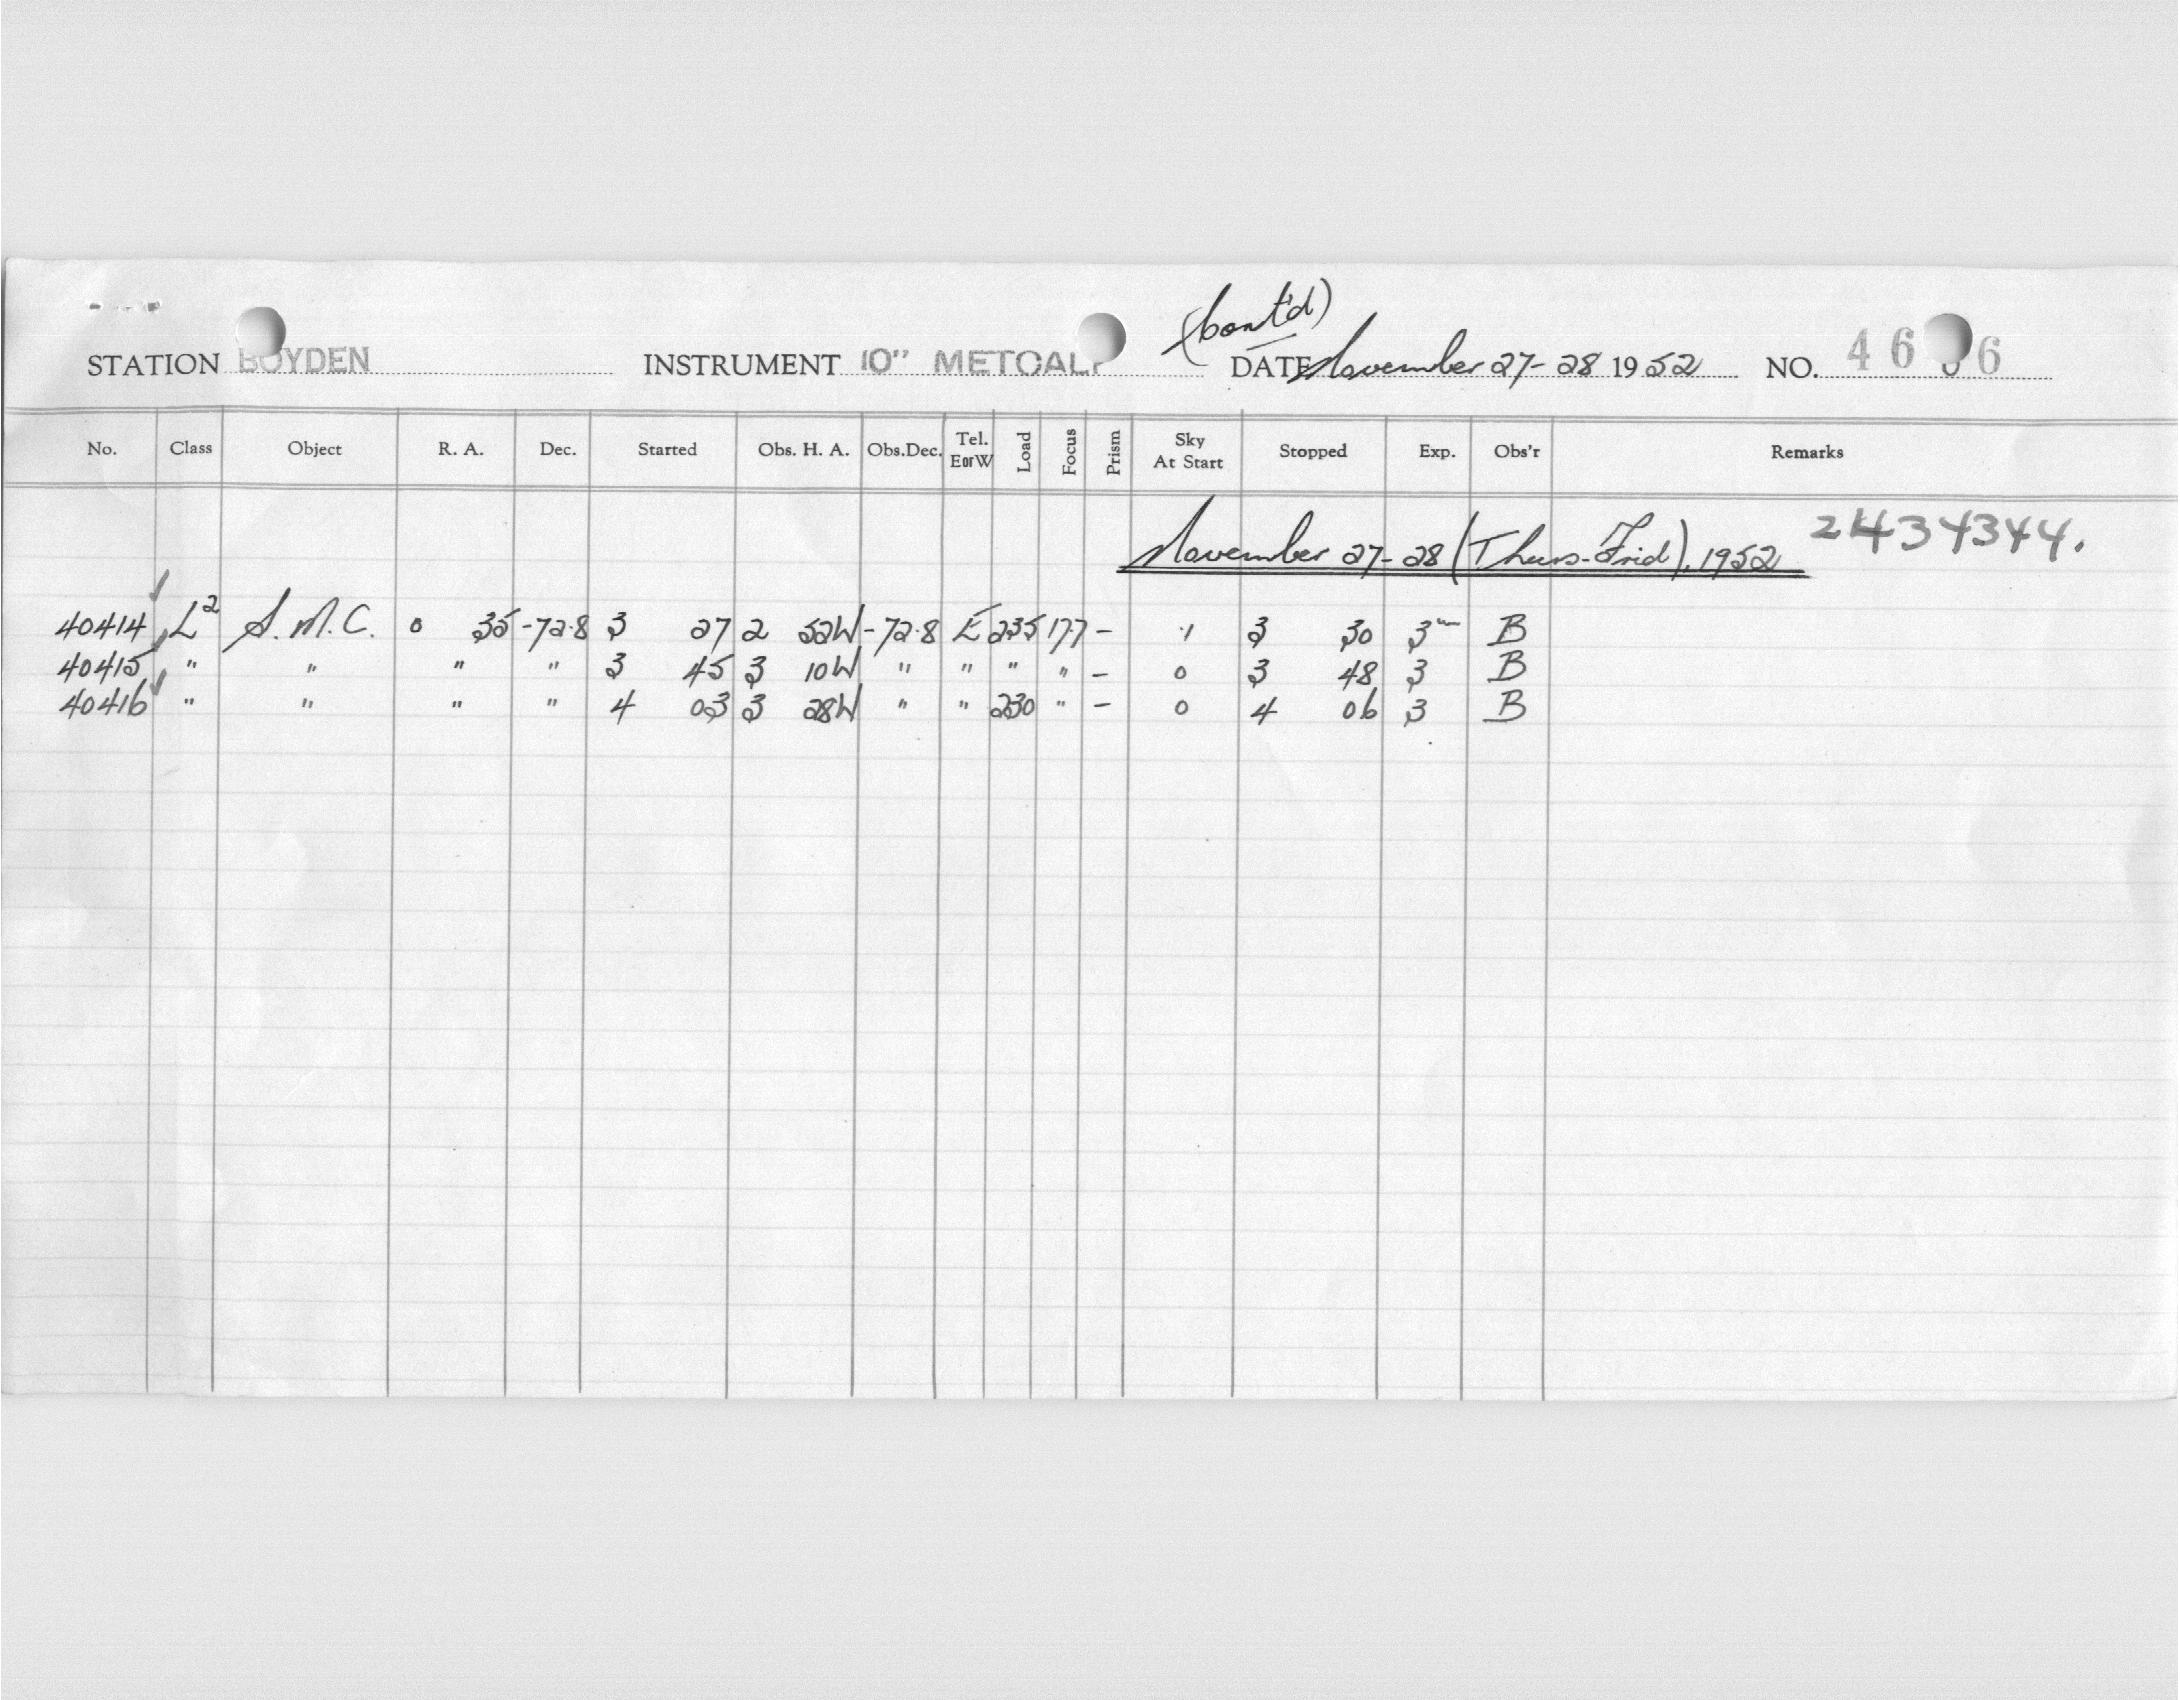 (Cont'd)
STATION BOYDEN INSTRUMENT 10" METCALF DATE November 27-28 1952 NO.
No. Class Object R. A. Dec. Started Obs. H. A. Obs.Dec. Tel. EorW Load Focus Prism Sky At Start Stopped Exp. Obs'r Remarks
November 27-28 (Thurs-Frid), 1952 2434344.
40414 L² S.M.C. 0 35 -72.8 3 27 2 52W -72.8 E 235 17.7 - .1 3 30 3m B
40415 " " " " 3 45 3 10W " " " " - 0 3 48 3 B
40416 " " " " 4 03 3 28W " " 230 " - 0 4 06 3 B